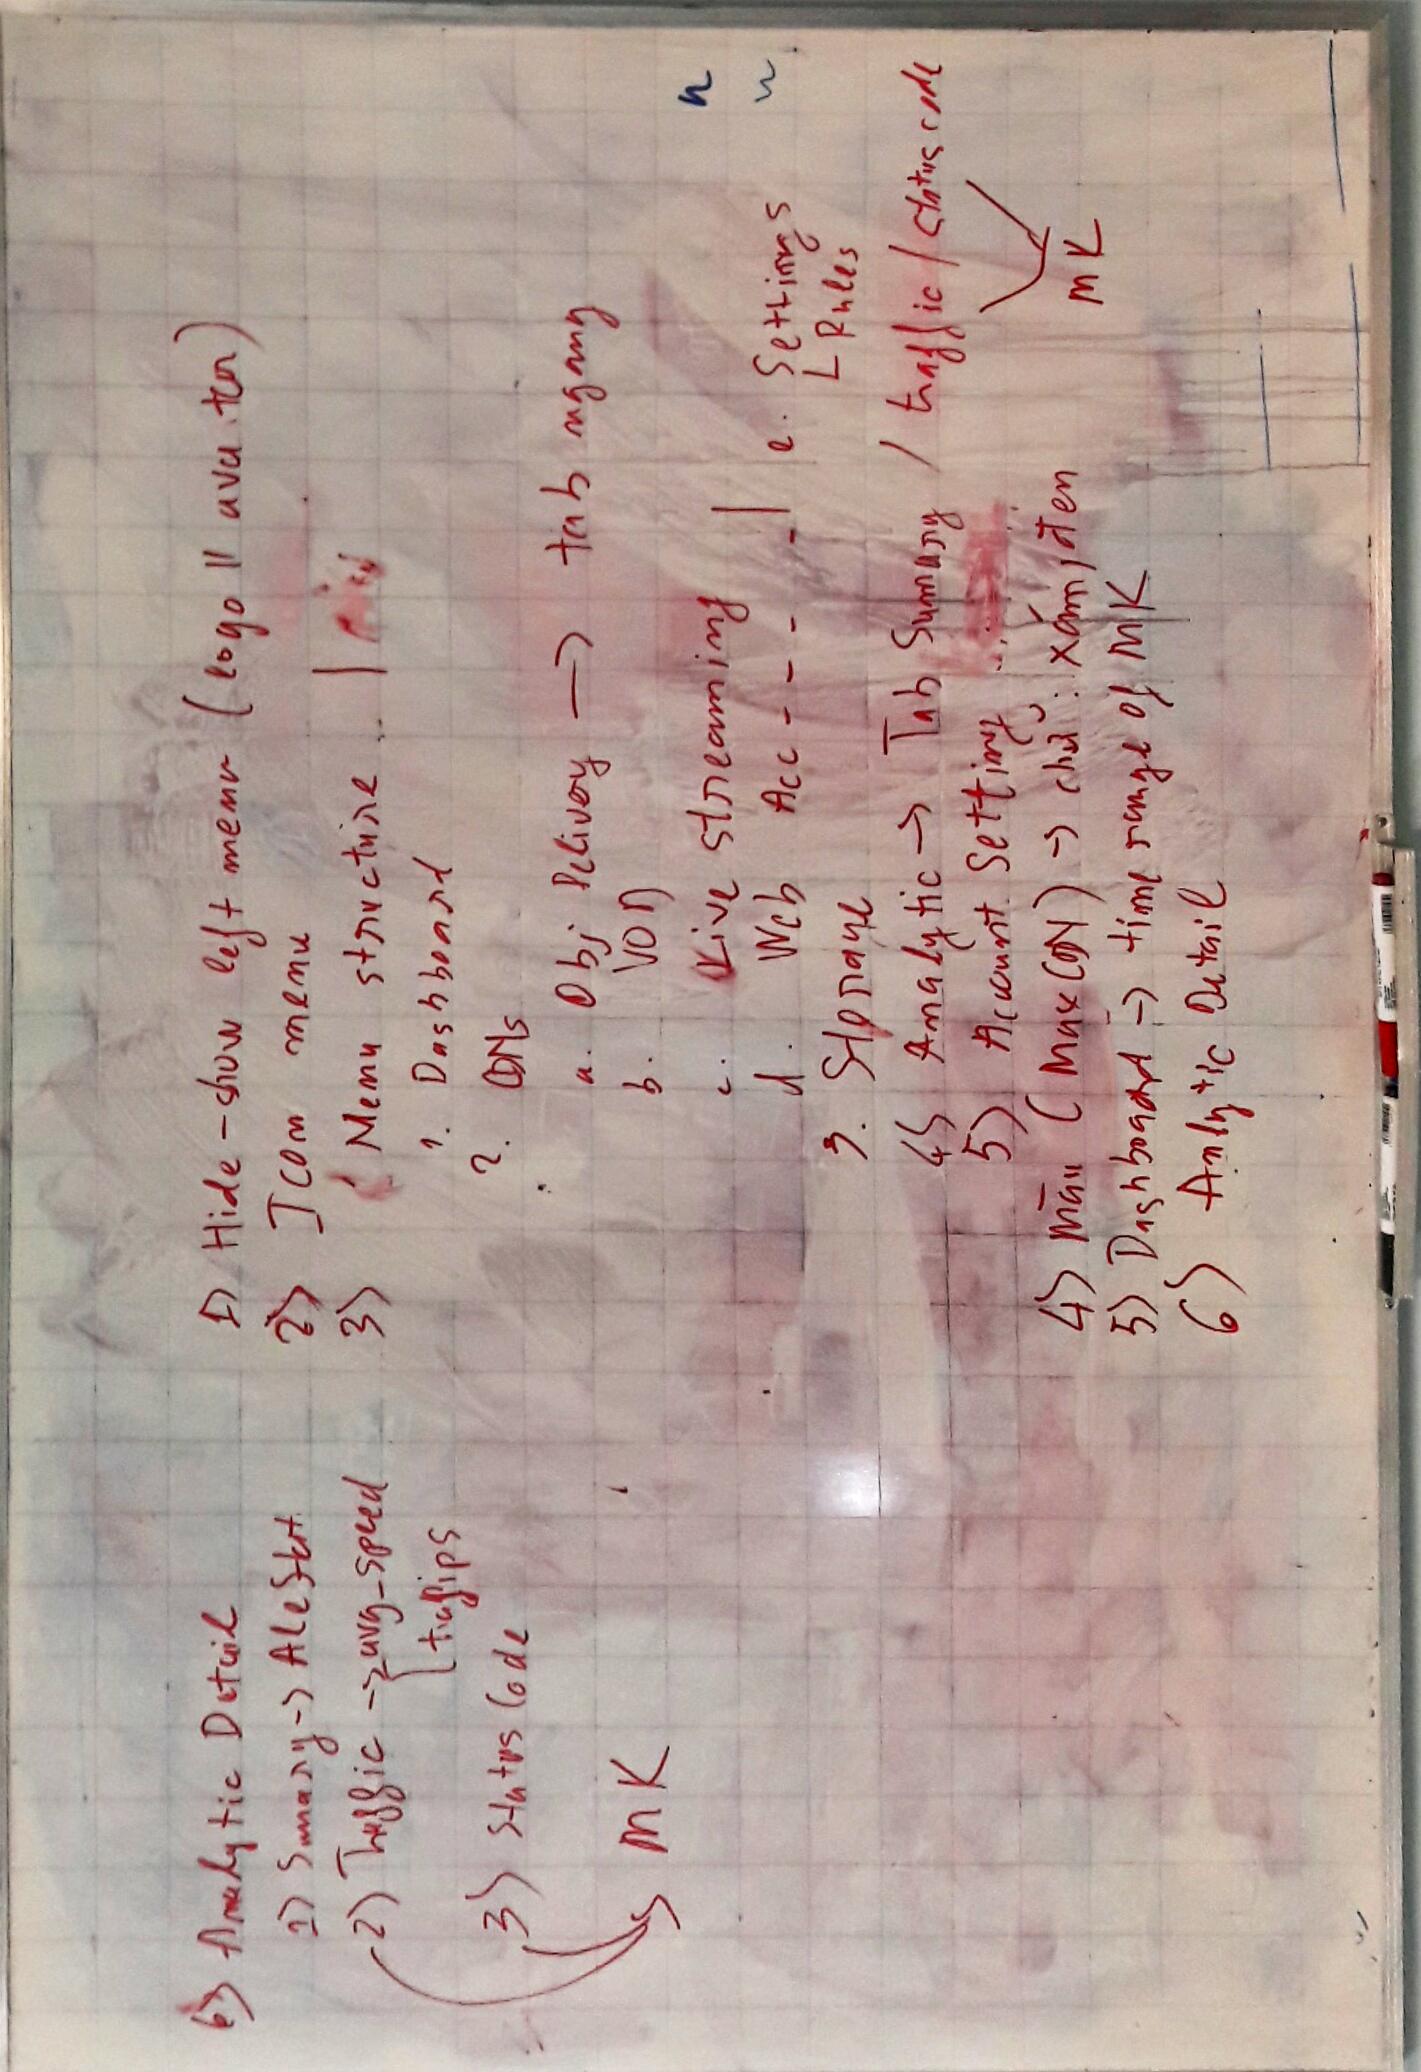 6) Analytic Detail
1) Sumary -> AleStat
2) Traffic -> avg_speed
trafips
3) Status Code
MK
1) Hide - show left menu (logo || avatar)
2) Icon menu
3) Menu structure .. |
1. Dashboard
2. CDNs
a. Obj Delivery -> tab ngang
b. VOD
c. Live streaming
d. Web Acc - - - -
e. Settings
Rules
3. Storage
4) Analytic -> Tab Sumary / traffic / status code
MK
5) Account Setting ...
4) màu (MaxCDN) -> chữ: xám, đen
5) Dashboard -> time range of MK
6) Anlytic Detail
n
n